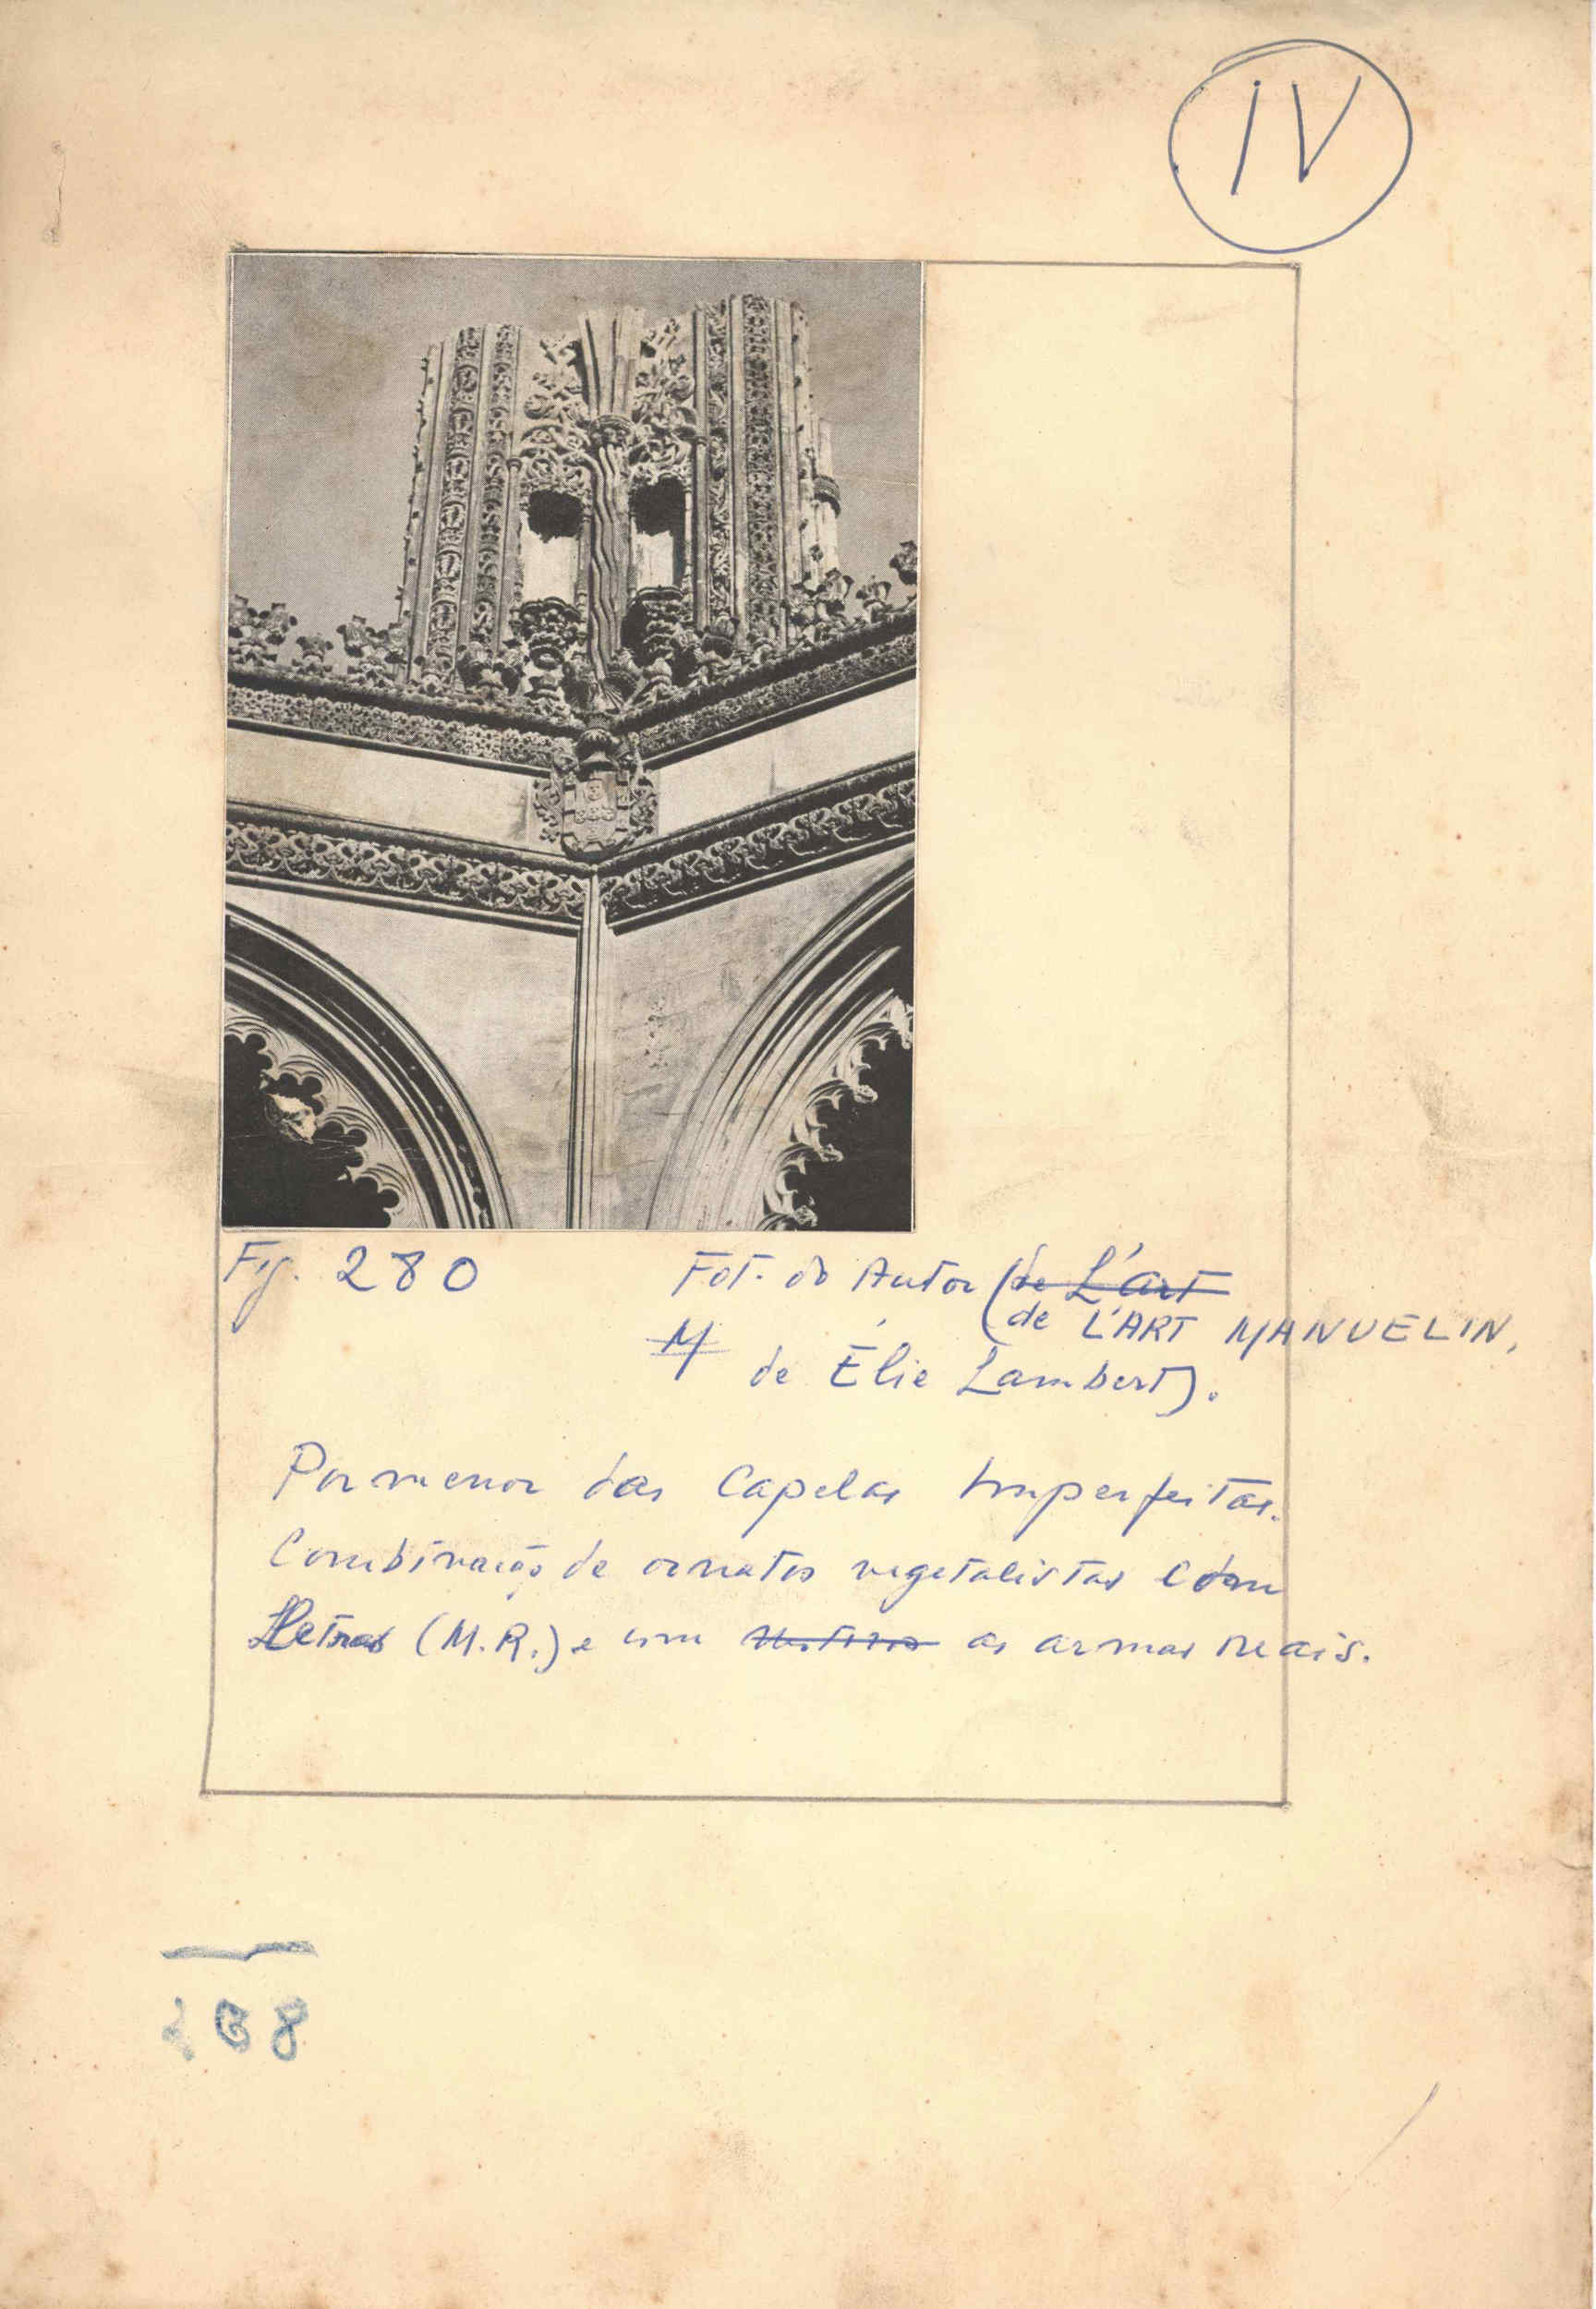 IV
Fig. 280
Fot. do Autor (de L'art
(de L'ART MANUELIN,
M de Élie Lambert).
Pormenor das Capelas Imperfeitas.
Combinação de ornatos vegetalistas com
Letras (M.R.) e com as armas reais.
268